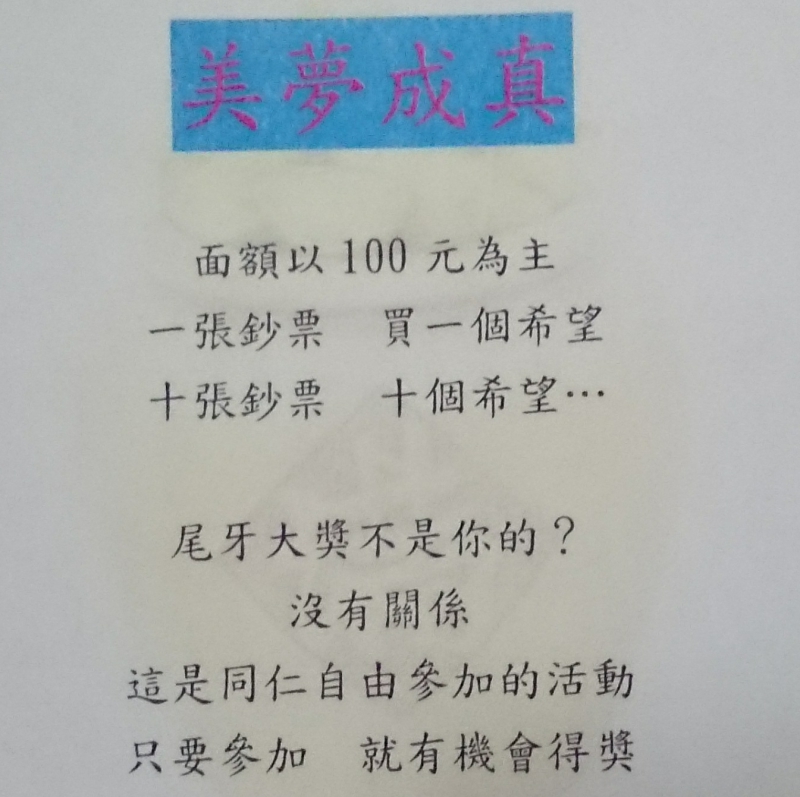 美夢成真
面額以100元為主
一張鈔票 買一個希望
十張鈔票 十個希望…
尾牙大獎不是你的？
沒有關係
這是同仁自由參加的活動
只要參加 就有機會得獎